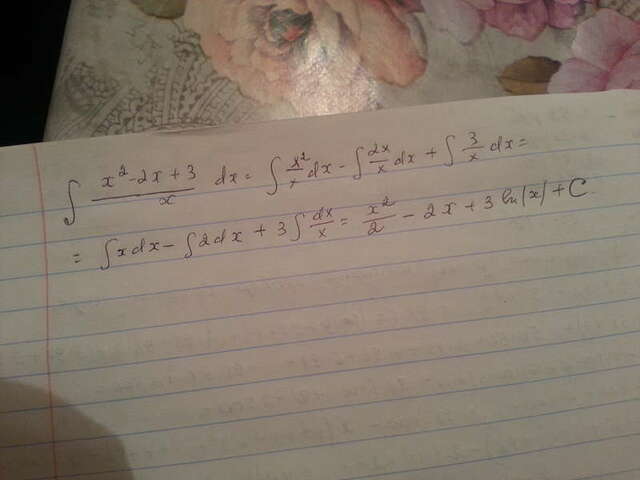 ∫ (x²-2x+3)/x dx = ∫ x²/x dx - ∫ 2x/x dx + ∫ 3/x dx =
= ∫ x dx - ∫ 2dx + 3 ∫ dx/x = x²/2 - 2x + 3 ln|x| + C